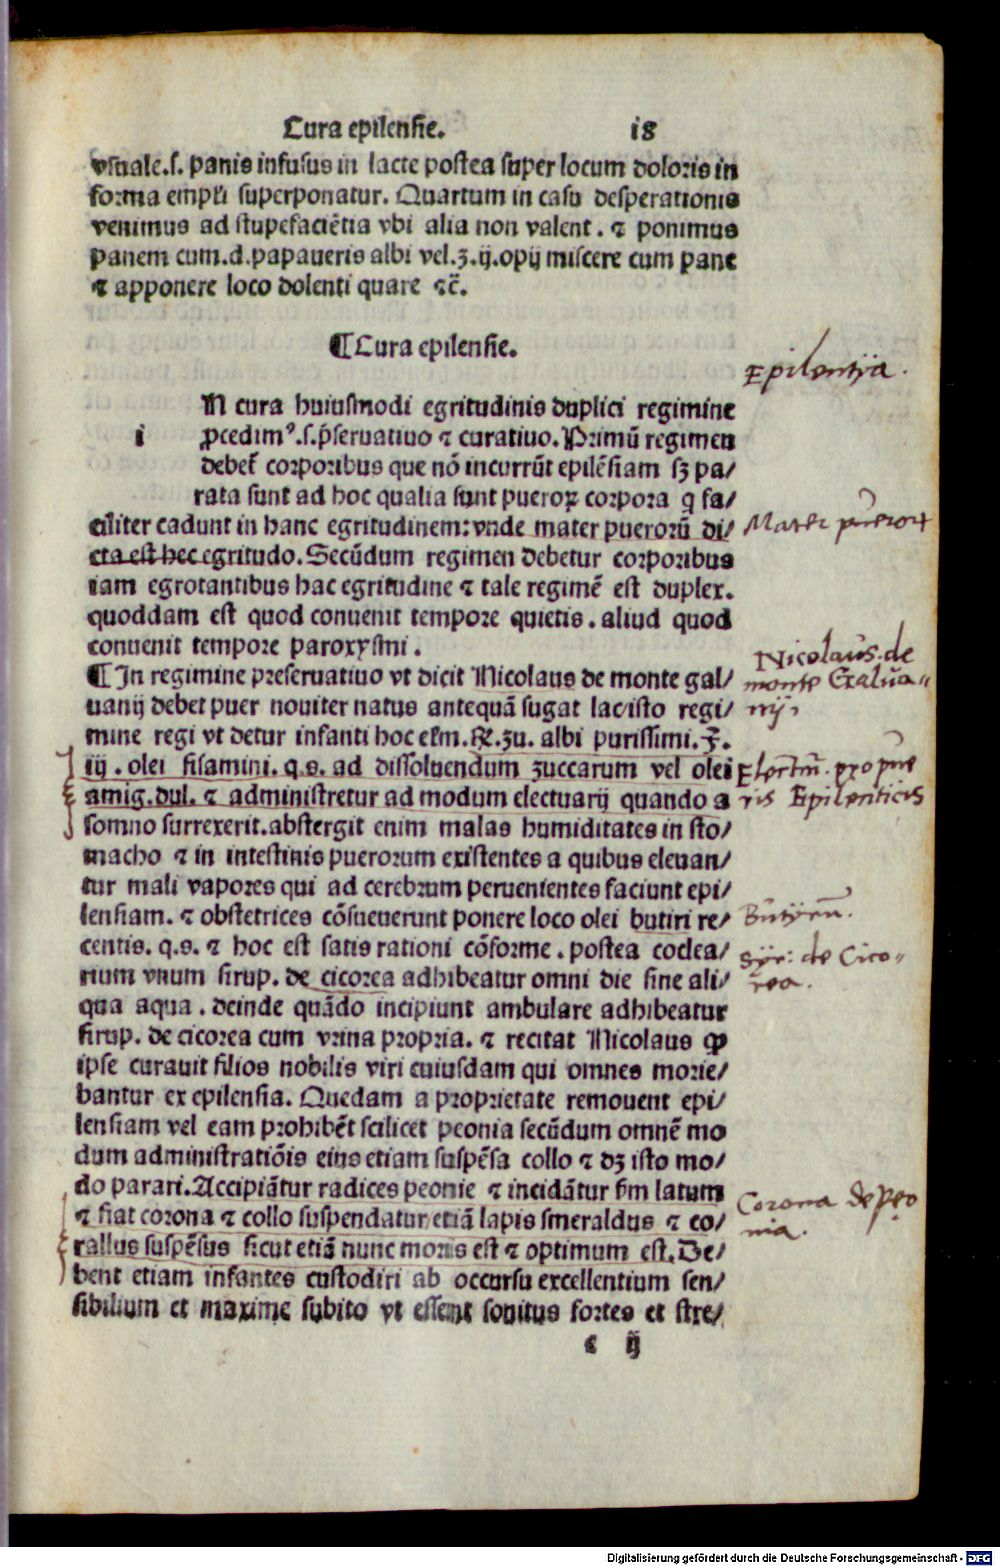 Cura epilensie. 18
vsuale.s. panis infusus in lacte postea super locum doloris in
forma empłi superponatur. Quartum in casu desperationis
venimus ad stupefaciētia vbi alia non valent. ⁊ ponimus
panem cum.d.papaueris albi vel.ʒ.ij.opij miscere cum pane
⁊ apponere loco dolenti quare ⁊c̄.
¶Cura epilensie.
Epilentÿa.
iN cura huiusmodi egritudinis duplici regimine
ꝓcedimꝰ.s.p̄seruatiuo ⁊ curatiuo. Primū regimen
debet̄ corporibus que nō incurrūt epilēsiam sꝫ pa/
rata sunt ad hoc qualia sunt pueroꝝ corpora q̄ fa/
ciliter cadunt in hanc egritudinem: vnde mater puerorū di/
Mater pueror̄
cta est hec egritudo. Secūdum regimen debetur corporibus
iam egrotantibus hac egritudine ⁊ tale regimē est duplex.
quoddam est quod conuenit tempore quietis. aliud quod
conuenit tempore paroxysmi.
¶In regimine preseruatiuo vt dicit Nicolaus de monte gal/
Nicolaus: de
monte Galua=
nij
uanij debet puer nouiter natus antequā sugat lac isto regi/
mine regi vt detur infanti hoc elm̄.℞.zu. albi purissimi.℥.
iij. olei sisamini. q.s. ad dissoluendum zuccarum vel olei
Elect̄m̄. pro pue
ris Epilenticis
amig.dul. ⁊ administretur ad modum electuarij quando a
somno surrexerit.abstergit enim malas humiditates in sto/
macho ⁊ in intestinis puerorum existentes a quibus eleuan/
tur mali vapores qui ad cerebrum peruenientes faciunt epi/
lensiam. ⁊ obstetrices cōsueuerunt ponere loco olei butiri re/
Butÿrū.
centis. q.s. ⁊ hoc est satis rationi cōforme. postea coclea/
Sÿr: de Cico=
rea.
rium vnum sirup. de cicorea adhibeatur omni die sine ali/
qua aqua. deinde quādo incipiunt ambulare adhibeatur
sirup. de cicorea cum vrina propria. ⁊ recitat Nicolaus ꝙ
ipse curauit filios nobilis viri cuiusdam qui omnes morie/
bantur ex epilensia. Quedam a proprietate remouent epi/
lensiam vel eam prohibēt scilicet peonia secūdum omnē mo
dum administratiōis eius etiam suspēsa collo ⁊ dꝫ isto mo/
do parari. Accipiātur radices peonie ⁊ incidātur s̄m latum
Corona de peo
nia.
⁊ fiat corona ⁊ collo suspendatur etiā lapis smeraldus ⁊ co/
rallus suspēsus sicut etiā nunc moris est ⁊ optimum est. De/
bent etiam infantes custodiri ab occursu excellentium sen/
sibilium et maxime subito vt essent sonitus fortes et stre/
c ij
Digitalisierung gefördert durch die Deutsche Forschungsgemeinschaft - DFG